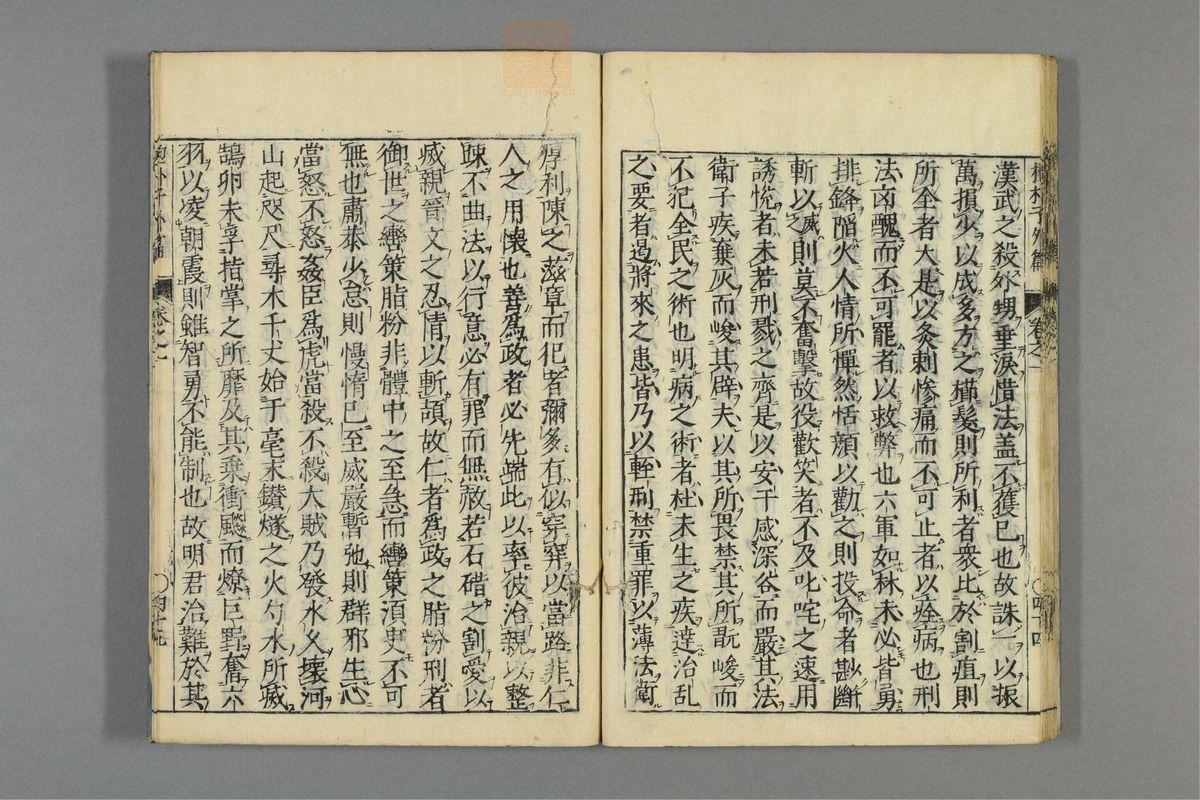 漢武之殺外甥垂淚惜法盖不獲已也故誅一以振
萬損少以成多方之櫛髮則所利者衆比於割疽則
所全者大是以灸刺慘痛而不可止者以痊病也刑
法凶醜而不可罷者以救弊也六軍如林未必皆勇
排鋒陷火人情所憚然恬顔以勸之則投命者尠斷
斬以威之則莫不奮擊故役歡笑者不及叱咤之速用
誘悅者未若刑戮之齊是以安于感深谷而嚴其法
衛子疾棄灰而峻其辟夫以其所畏禁其所翫峻而
不犯全民之術也明病之術者杜未生之疾達治乱
之要者遏將來之患皆乃以輕刑禁重罪以薄法衛
厚利陳之滋章而犯者彌多有似穿穽以當路非仁
人之用懷也善爲政者必先端此以率彼治親以整
踈不曲法以行意必有罪而無赦若石碏之割愛以
威親晉文之忍情以斬頡故仁者爲政之脂粉刑者
御世之轡策脂粉非體中之至急而轡策須史不可
無也肅恭少怠則慢惰已至威嚴暫弛則群邪生心
當怒不怒姦臣爲虎當殺不殺大賊乃發水久壞河
山起咫尺尋木千丈始于毫末鑚燧之火勺水所滅
鵠卵未孚指掌之所靡及其乗衝飈而燎巨野奮六
羽以凌朝霞則雖智勇不能制也故明君治難於其
抱朴子外篇
卷之一